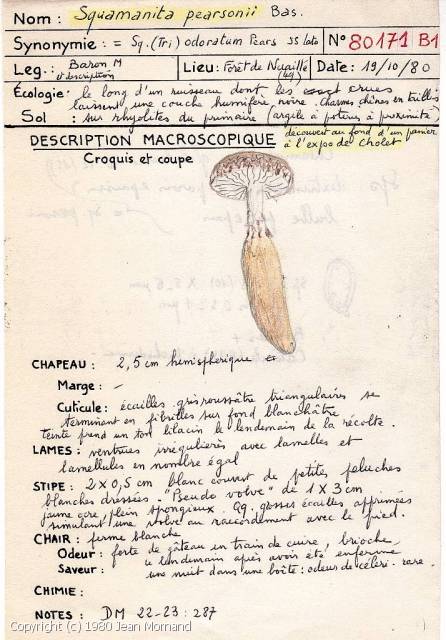 Nom : Squamanita pearsonii Bas.
Synonymie : = Sq. (Tri) odoratum Pears ss lato N° 80171 B1
Leg. : Baron M Lieu : Forêt de Nuaillé Date : 19/10/80
et description (49)
Écologie : le long d'un ruisseau dont les crues
laissent une couche humifère noire. charmes, chênes en taillis
Sol : sur rhyolites du primaire (argile à potiers à proximité)
découvert au fond d'un panier
à l'expo de Cholet
DESCRIPTION MACROSCOPIQUE
Croquis et coupe
CHAPEAU : 2,5 cm hémisphérique
Marge : -
Cuticule : écailles gris roussâtre triangulaires se
terminant en fibrilles sur fond blanchâtre
teinte prend un ton lilacin le lendemain de la récolte.
LAMES : ventrues irrégulières avec lamelles et
lamellules en nombre égal
STIPE : 2 x 0,5 cm blanc couvert de petites peluches
blanches dressées. "Pseudo volve" de 1 x 3 cm
jaune ocre, plein spongieux. Qq. grosses écailles apprimées
simulant une volve au raccordement avec le pied.
CHAIR : ferme blanche
Odeur : forte de gâteau en train de cuire, brioche,
le lendemain après avoir été enfermé
Saveur : une nuit dans une boîte : odeur de céleri. rare.
CHIMIE :
NOTES : DM 22-23 : 287
Copyright (c) 1980 Jean Mornand